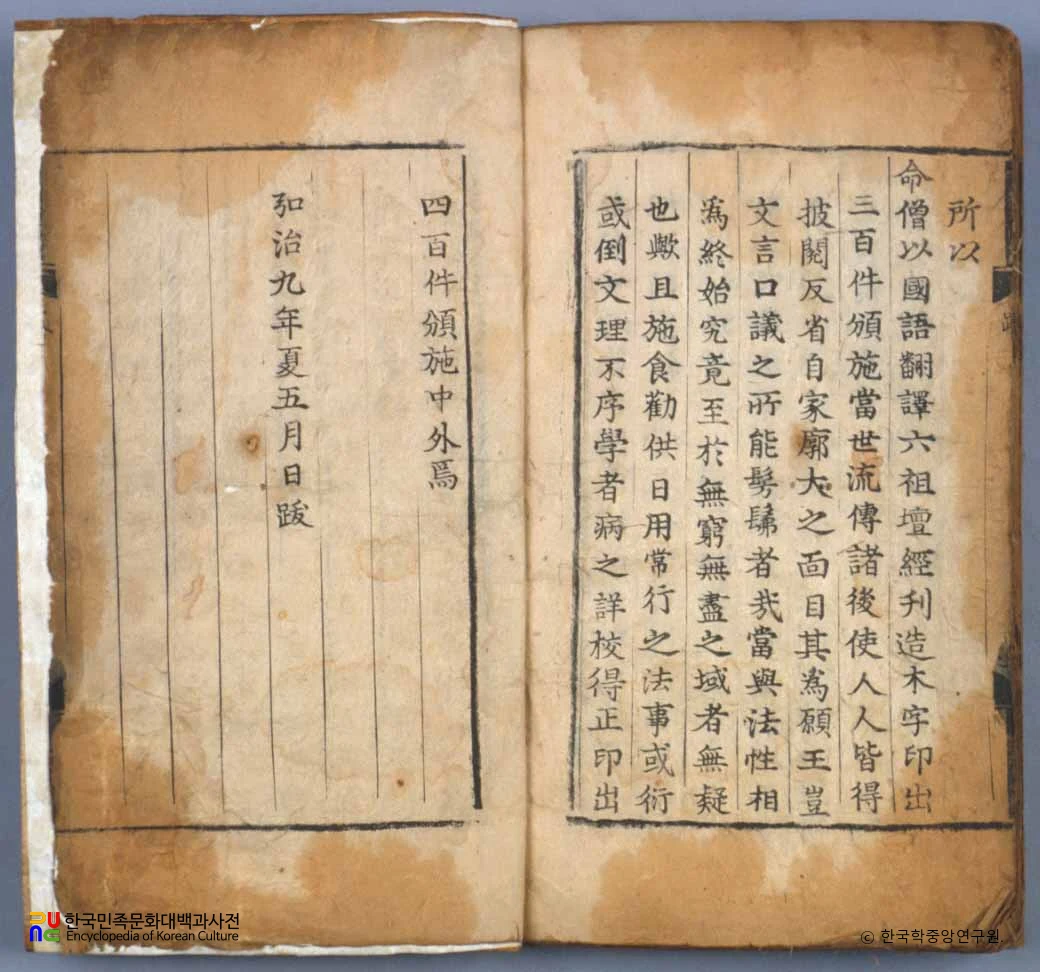 所以
命僧以國語翻譯六祖壇經刋造木字印出
三百件頒施當世流傳諸後使人人皆得
披閱反省自家廓大之面目其為願王豈
文言口議之所能髣髴者哉當與法性相
為終始究竟至於無窮無盡之域者無疑
也歟且施食勸供日用常行之法事或衍
或倒文理不序學者病之詳校得正印出
四百件頒施中外焉
弘治九年夏五月日跋
PUNG 한국민족문화대백과사전
Encyclopedia of Korean Culture
© 한국학중앙연구원